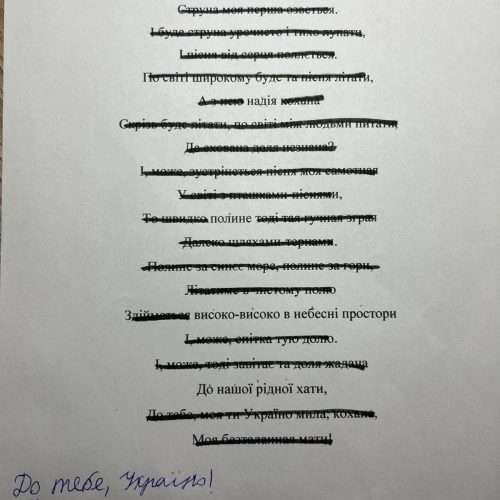 Струна моя перша озветься.
І буде струна урочисто і тихо лунати,
І пісня від серця поллється.
По світі широкому буде та пісня літати,
А з нею надія кохана
Скрізь буде літати, по світі між людьми питати,
Де схована доля незнана?
І, може, зустрінеться пісня моя самотная
У світі з пташками-піснями,
То швидко полине тоді тая гучная зграя
Далеко шляхами-тернами.
Полине за синєє море, полине за гори,
Літатиме в чистому полю
Здійметься високо-високо в небесні простори
І, може, спітка тую долю.
І, може, тоді завітає та доля жадана
До нашої рідної хати,
До тебе, моя ти Україно мила, кохана,
Моя безталанная мати!
До тебе, Україно!